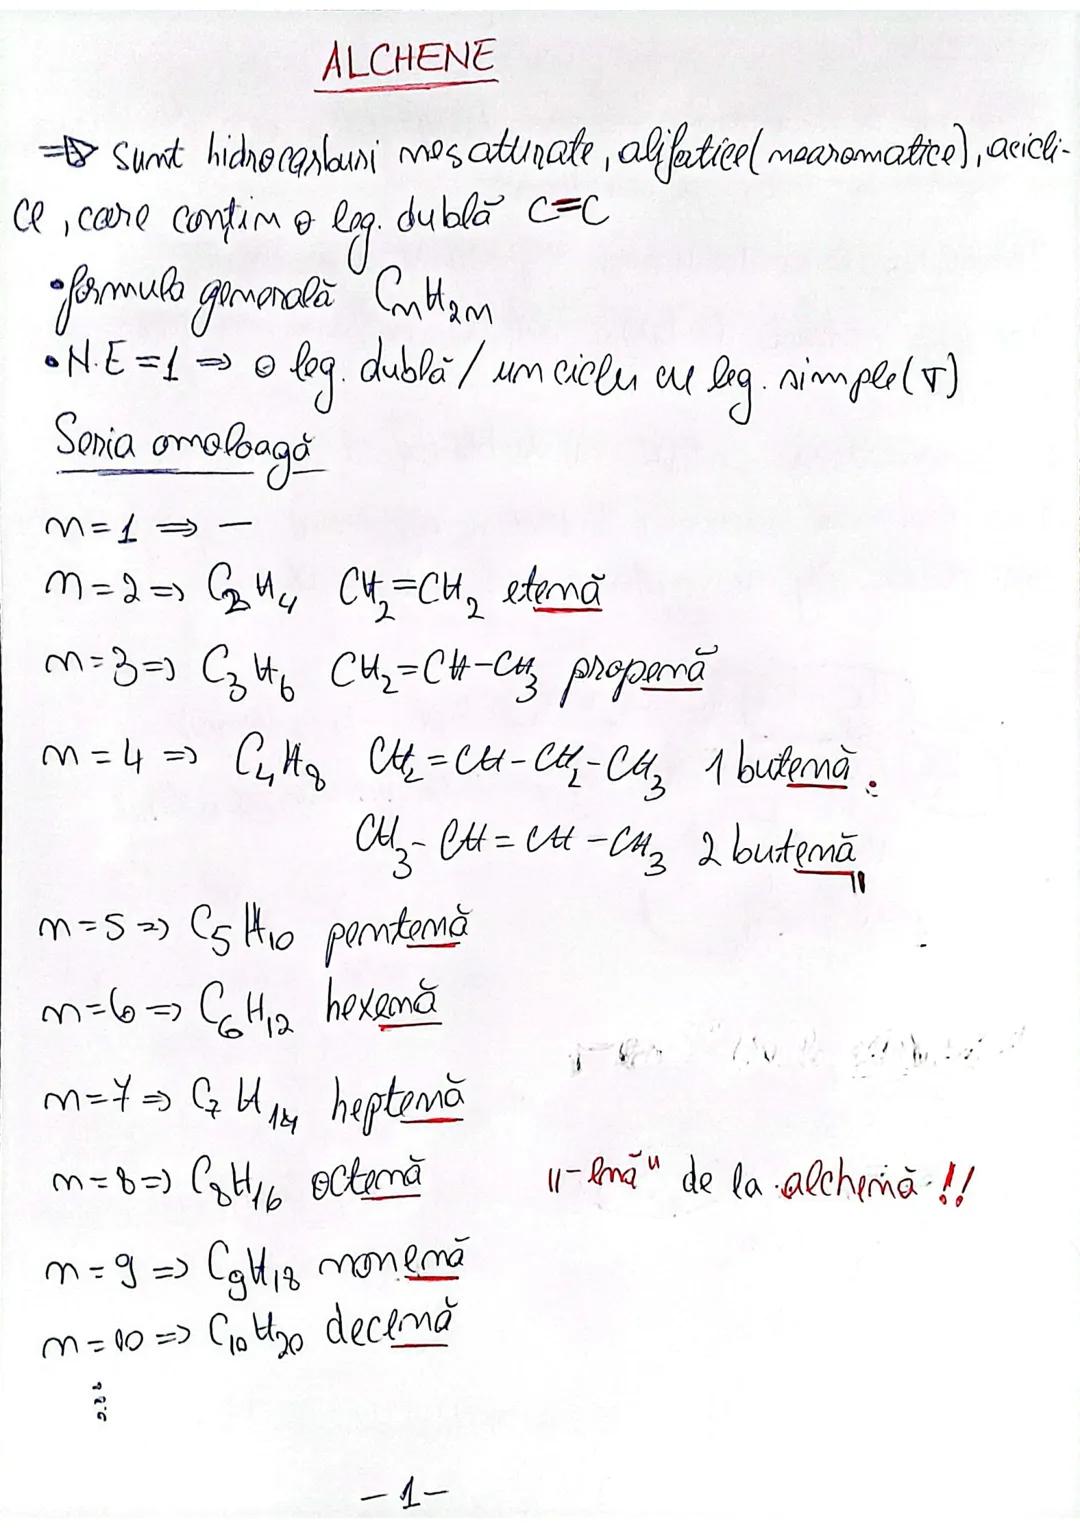 ALCHENE
=> sunt hidrocarburi nesaturate, alifatice (nearomatice), acicli-
ce, care conțin o leg. dublă C=C
• formula generală CnH2n
• N.E = 1 => o leg. dublă / un ciclu cu leg. simple (σ)
Seria omoloagă
n=1 => -
n=2 => C2H4 CH2=CH2 etenă
n=3 => C3H6 CH2=CH-CH3 propenă
n=4 => C4H8 CH2=CH-CH2-CH3 1 butenă
CH3-CH=CH-CH3 2 butenă
n=5 => C5H10 pentenă
n=6 => C6H12 hexenă
n=7 => C7H14 heptenă
n=8 => C8H16 octenă „-enă" de la alchenă !!
n=9 => C9H18 nonenă
n=10 => C10H20 decenă
-1-